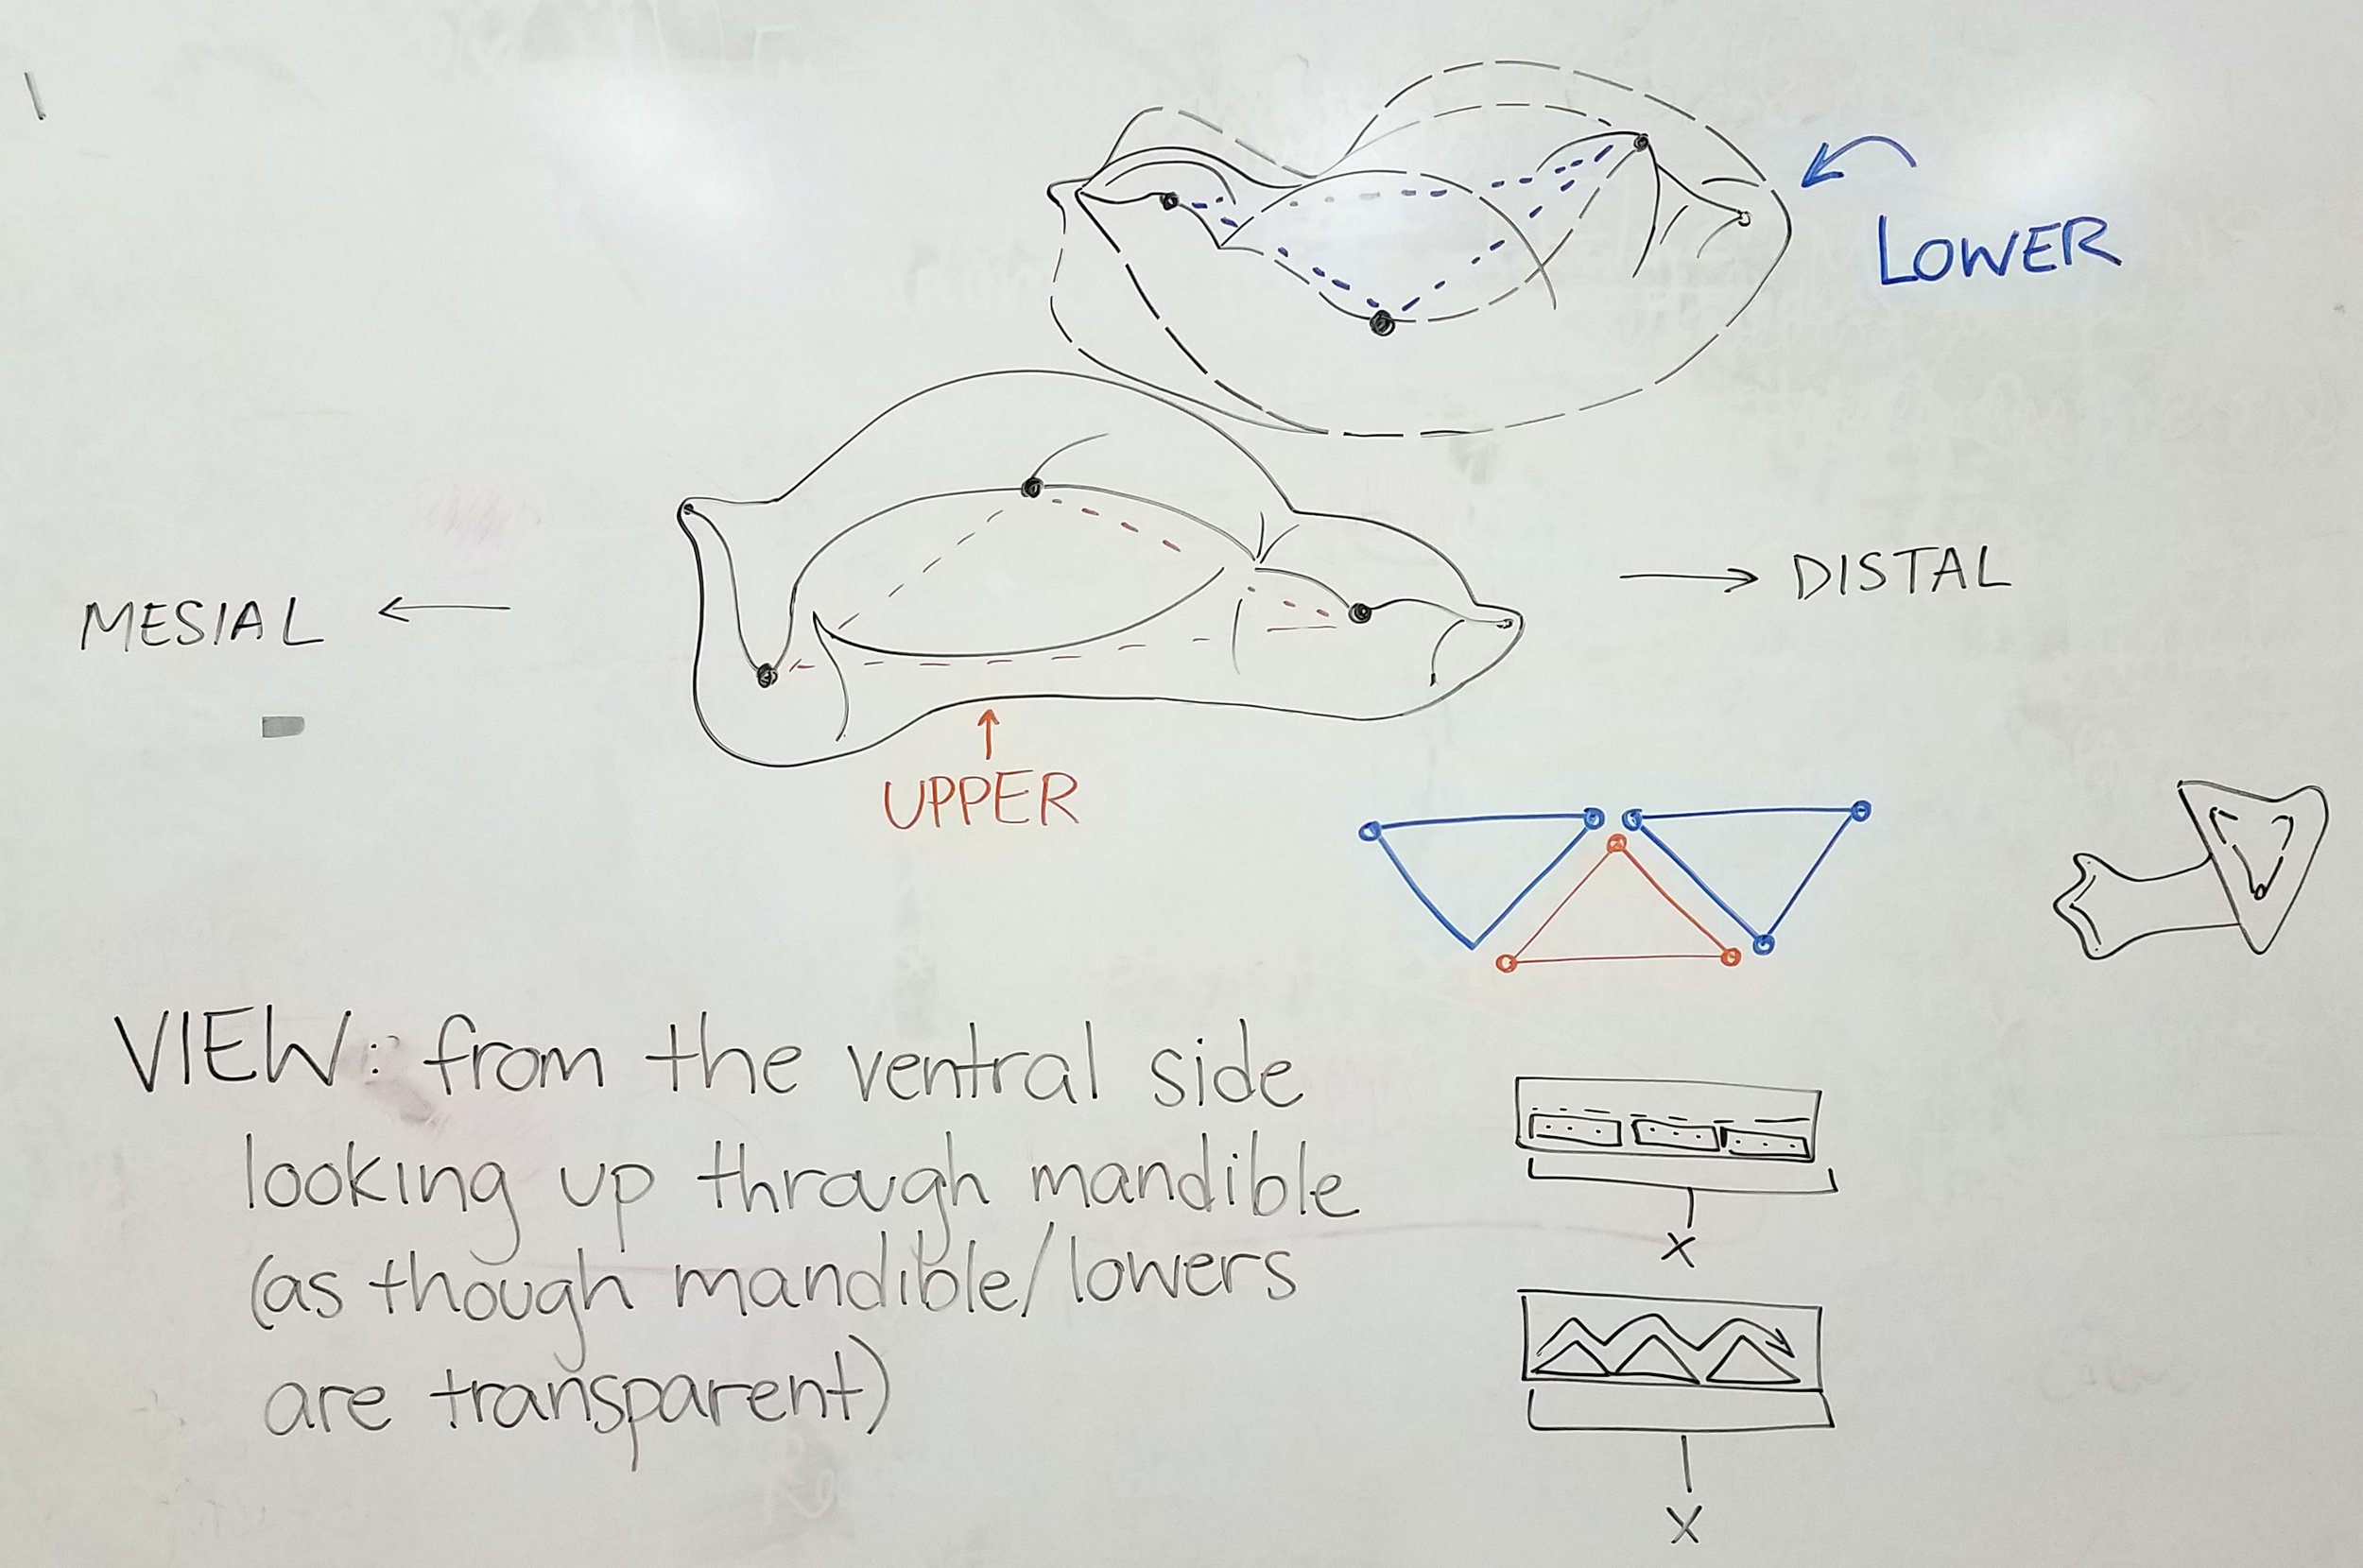 LOWER
MESIAL
DISTAL
UPPER
VIEW: from the ventral side
looking up through mandible
(as though mandible/lowers
are transparent)
X
X